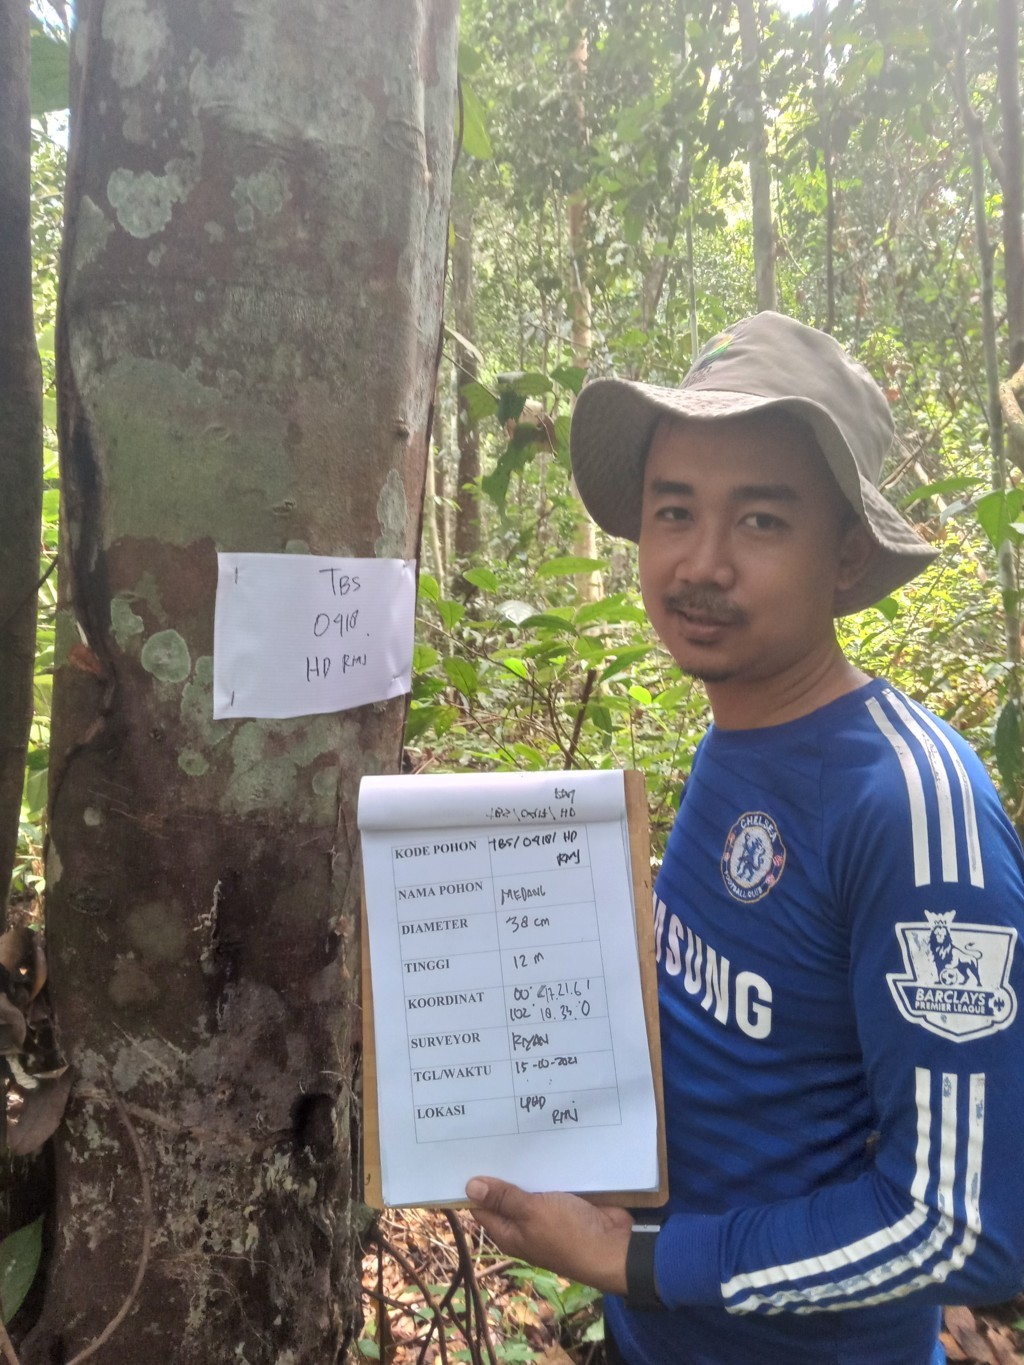 TBS
0918.
HD RMJ
KODE POHON TBS/0918/ HD
RMJ
NAMA POHON MEDANG
DIAMETER 38 cm
TINGGI 12 m
KOORDINAT 00° 47.21.6'
102° 18.35.0
SURVEYOR RIYAN
TGL/WAKTU 15-10-2021
LOKASI LPHD
RMJ
CHELSEA
FOOTBALL CLUB
AMSUNG
BARCLAYS
PREMIER LEAGUE